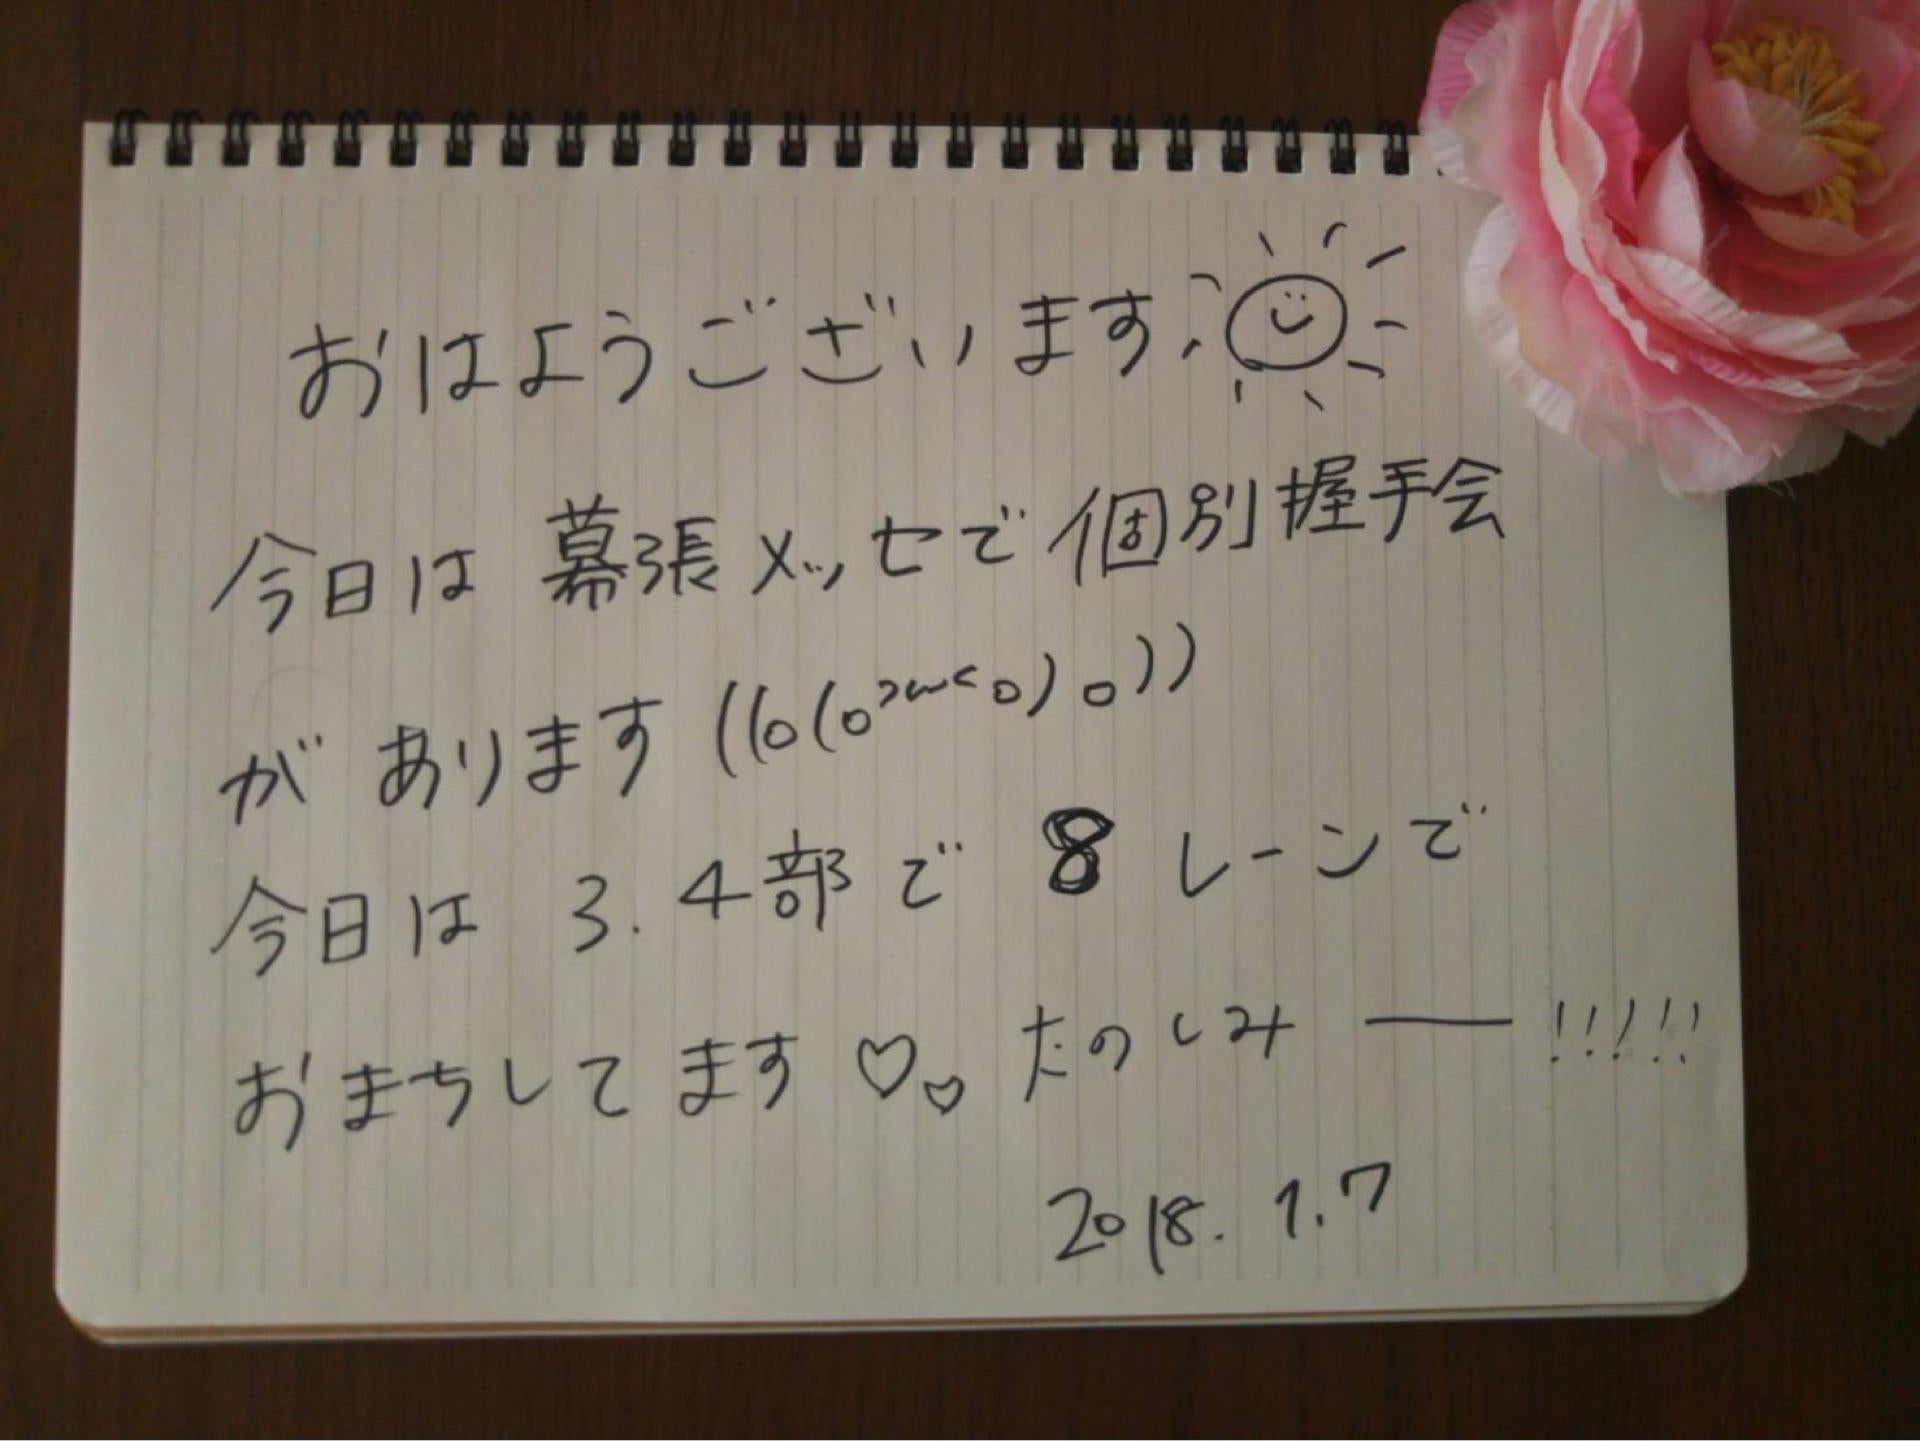 おはようございます
今日は幕張メッセで個別握手会
があります((o(o>ω<o)o))
今日は 3.4部で 8レーンで
おまちしてます♡♡ たのしみ──!!!!!
2018.1.7